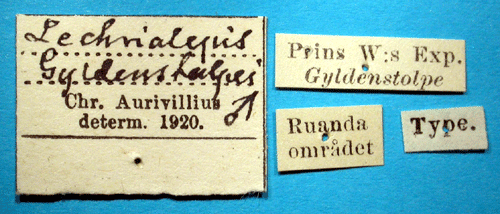 Lechriolepis
Gyldenstolpei
Chr. Aurivillius ♂
determ. 1920.
Prins W:s Exp.
Gyldenstolpe
Ruanda
området
Type.